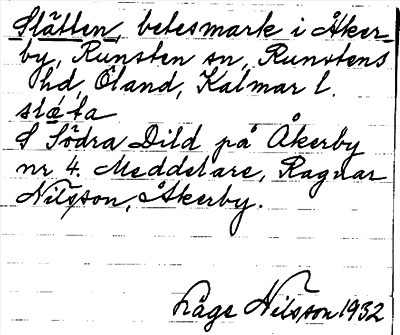 Slätten, betesmark i Åker-
by, Runsten sn, Runstens
hd, Öland, Kalmar l.
slǽta
S Södra Dild på Åkerby
nr 4. Meddelare, Ragnar
Nilsson, Åkerby.
Låge Nilsson 1932